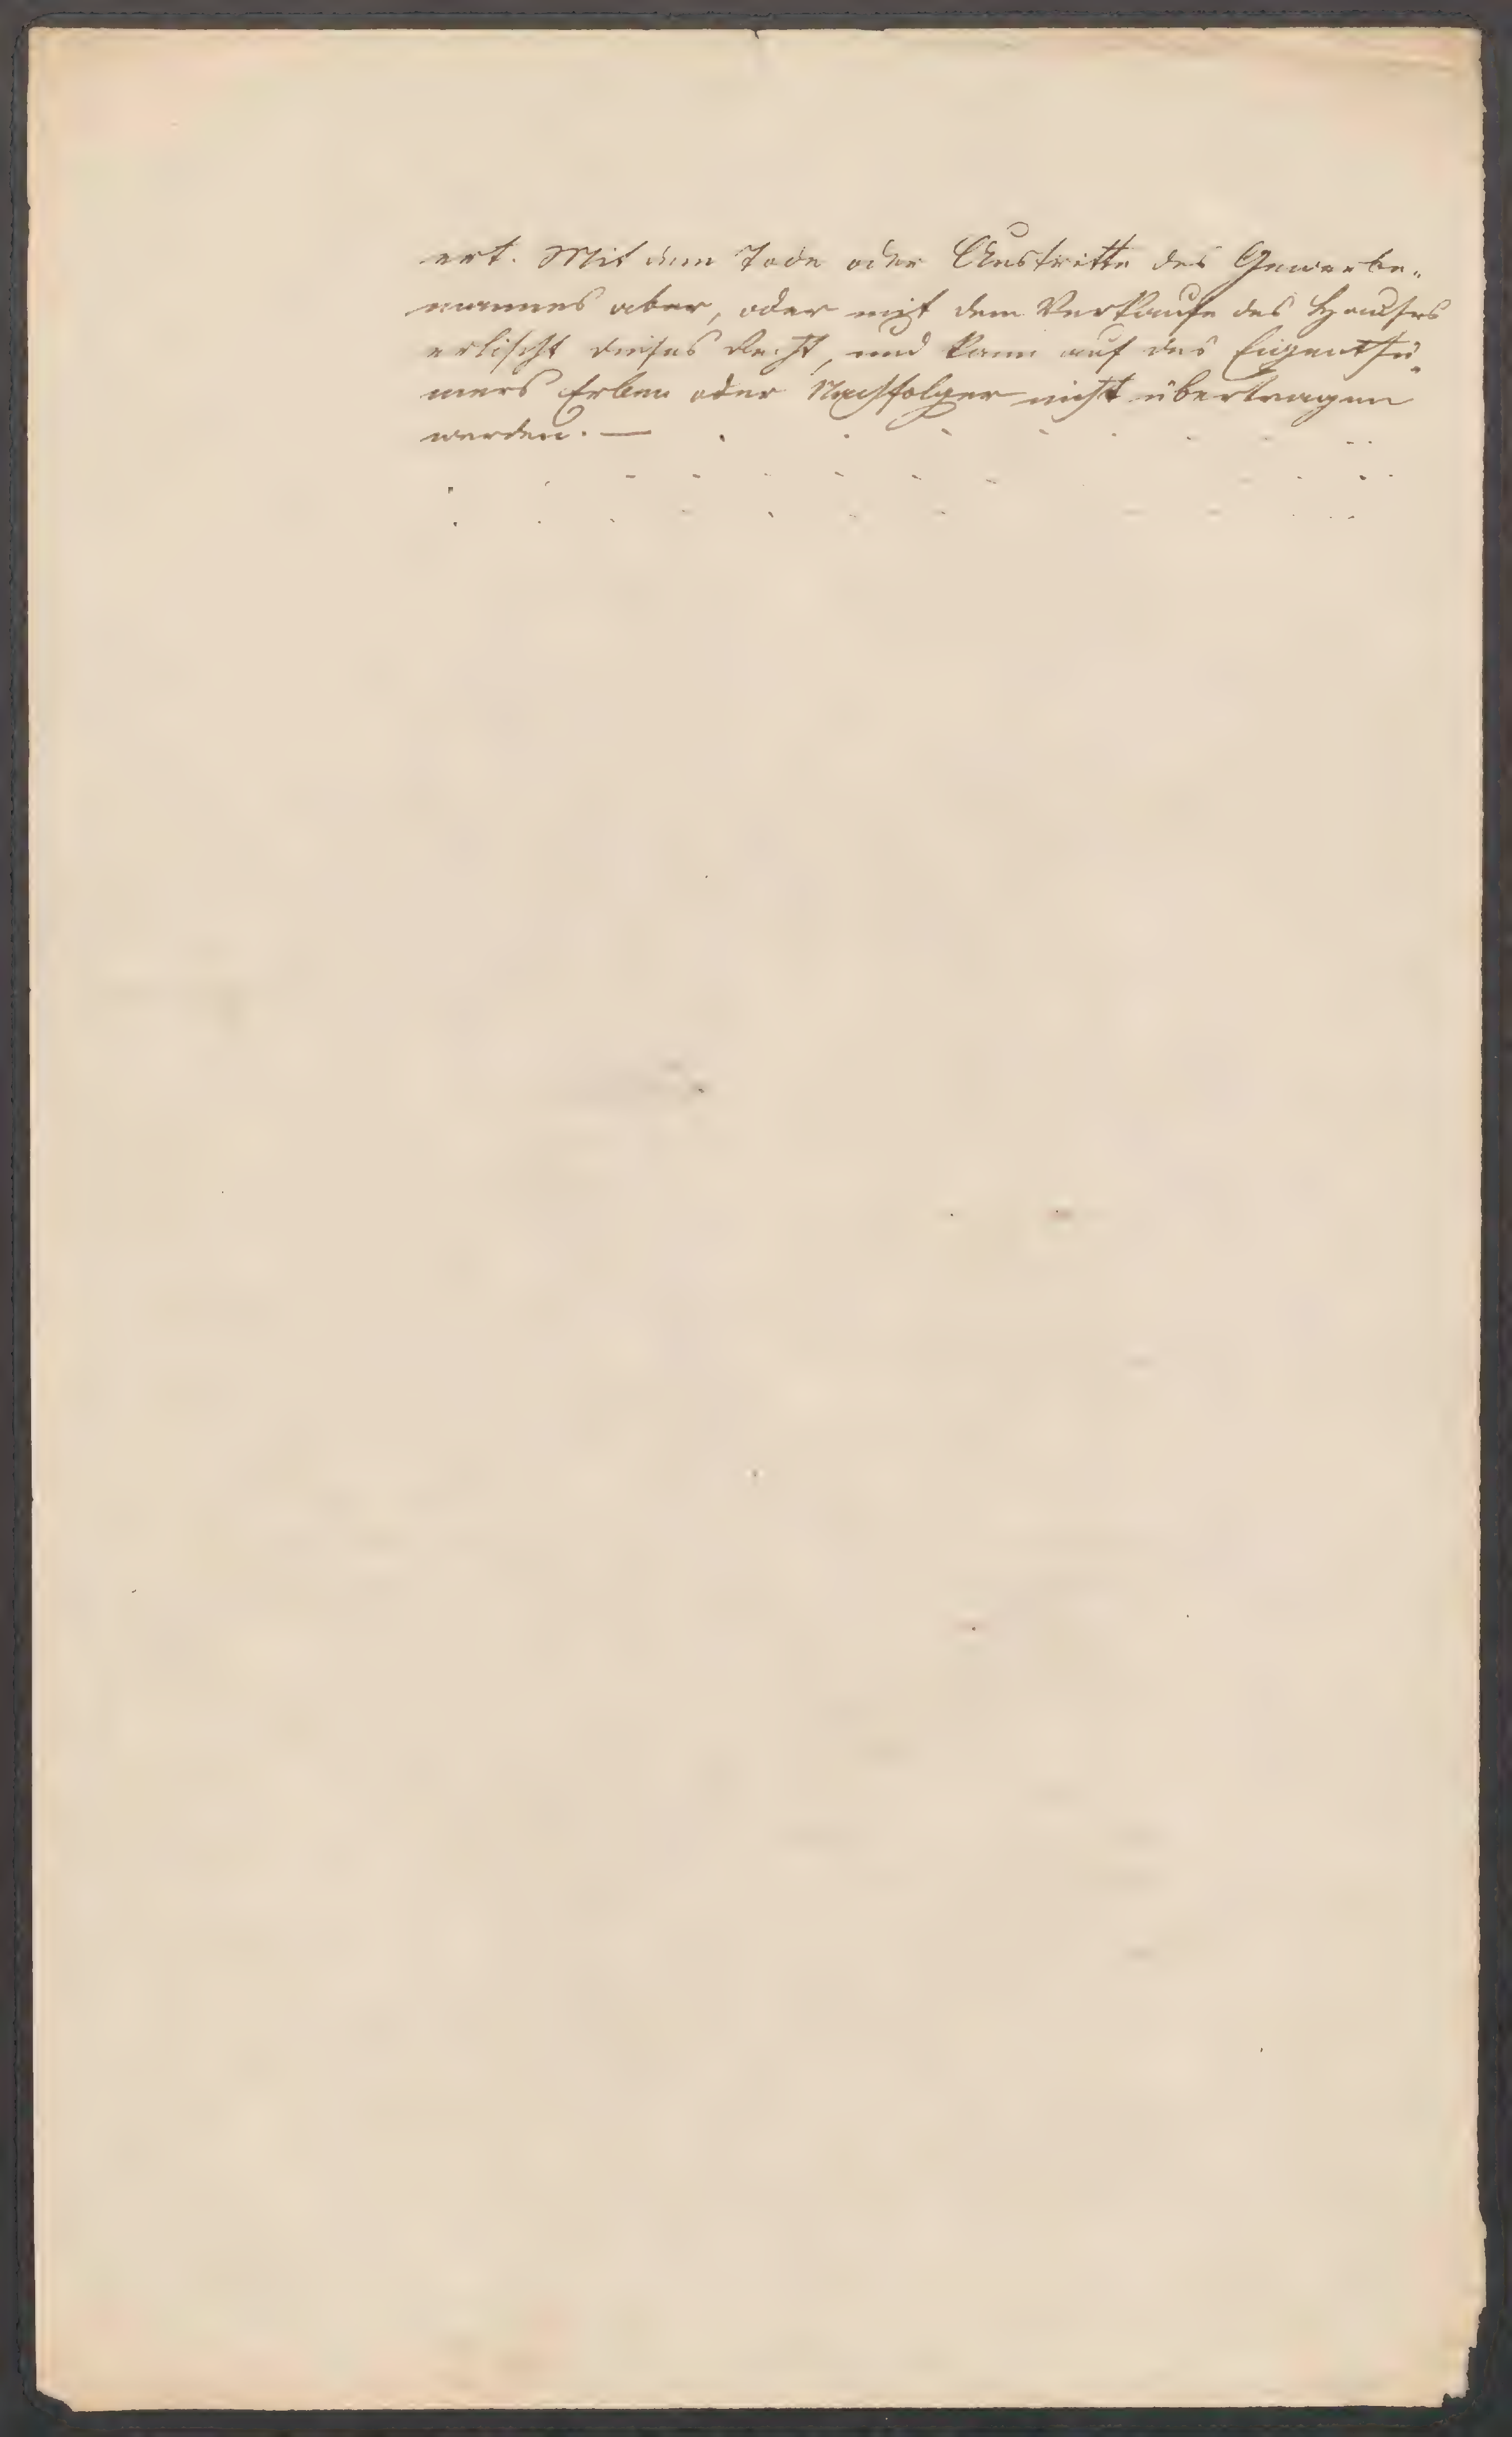 ert. Mit dem Tode oder Austritte des Gewerbe„
mannes aber, oder mit dem Verkaufe des Hauses
erlischt dieses Recht, und kann auf des Eigenthü„
mers Erben oder Nachfolger nicht übertragen
werden. —